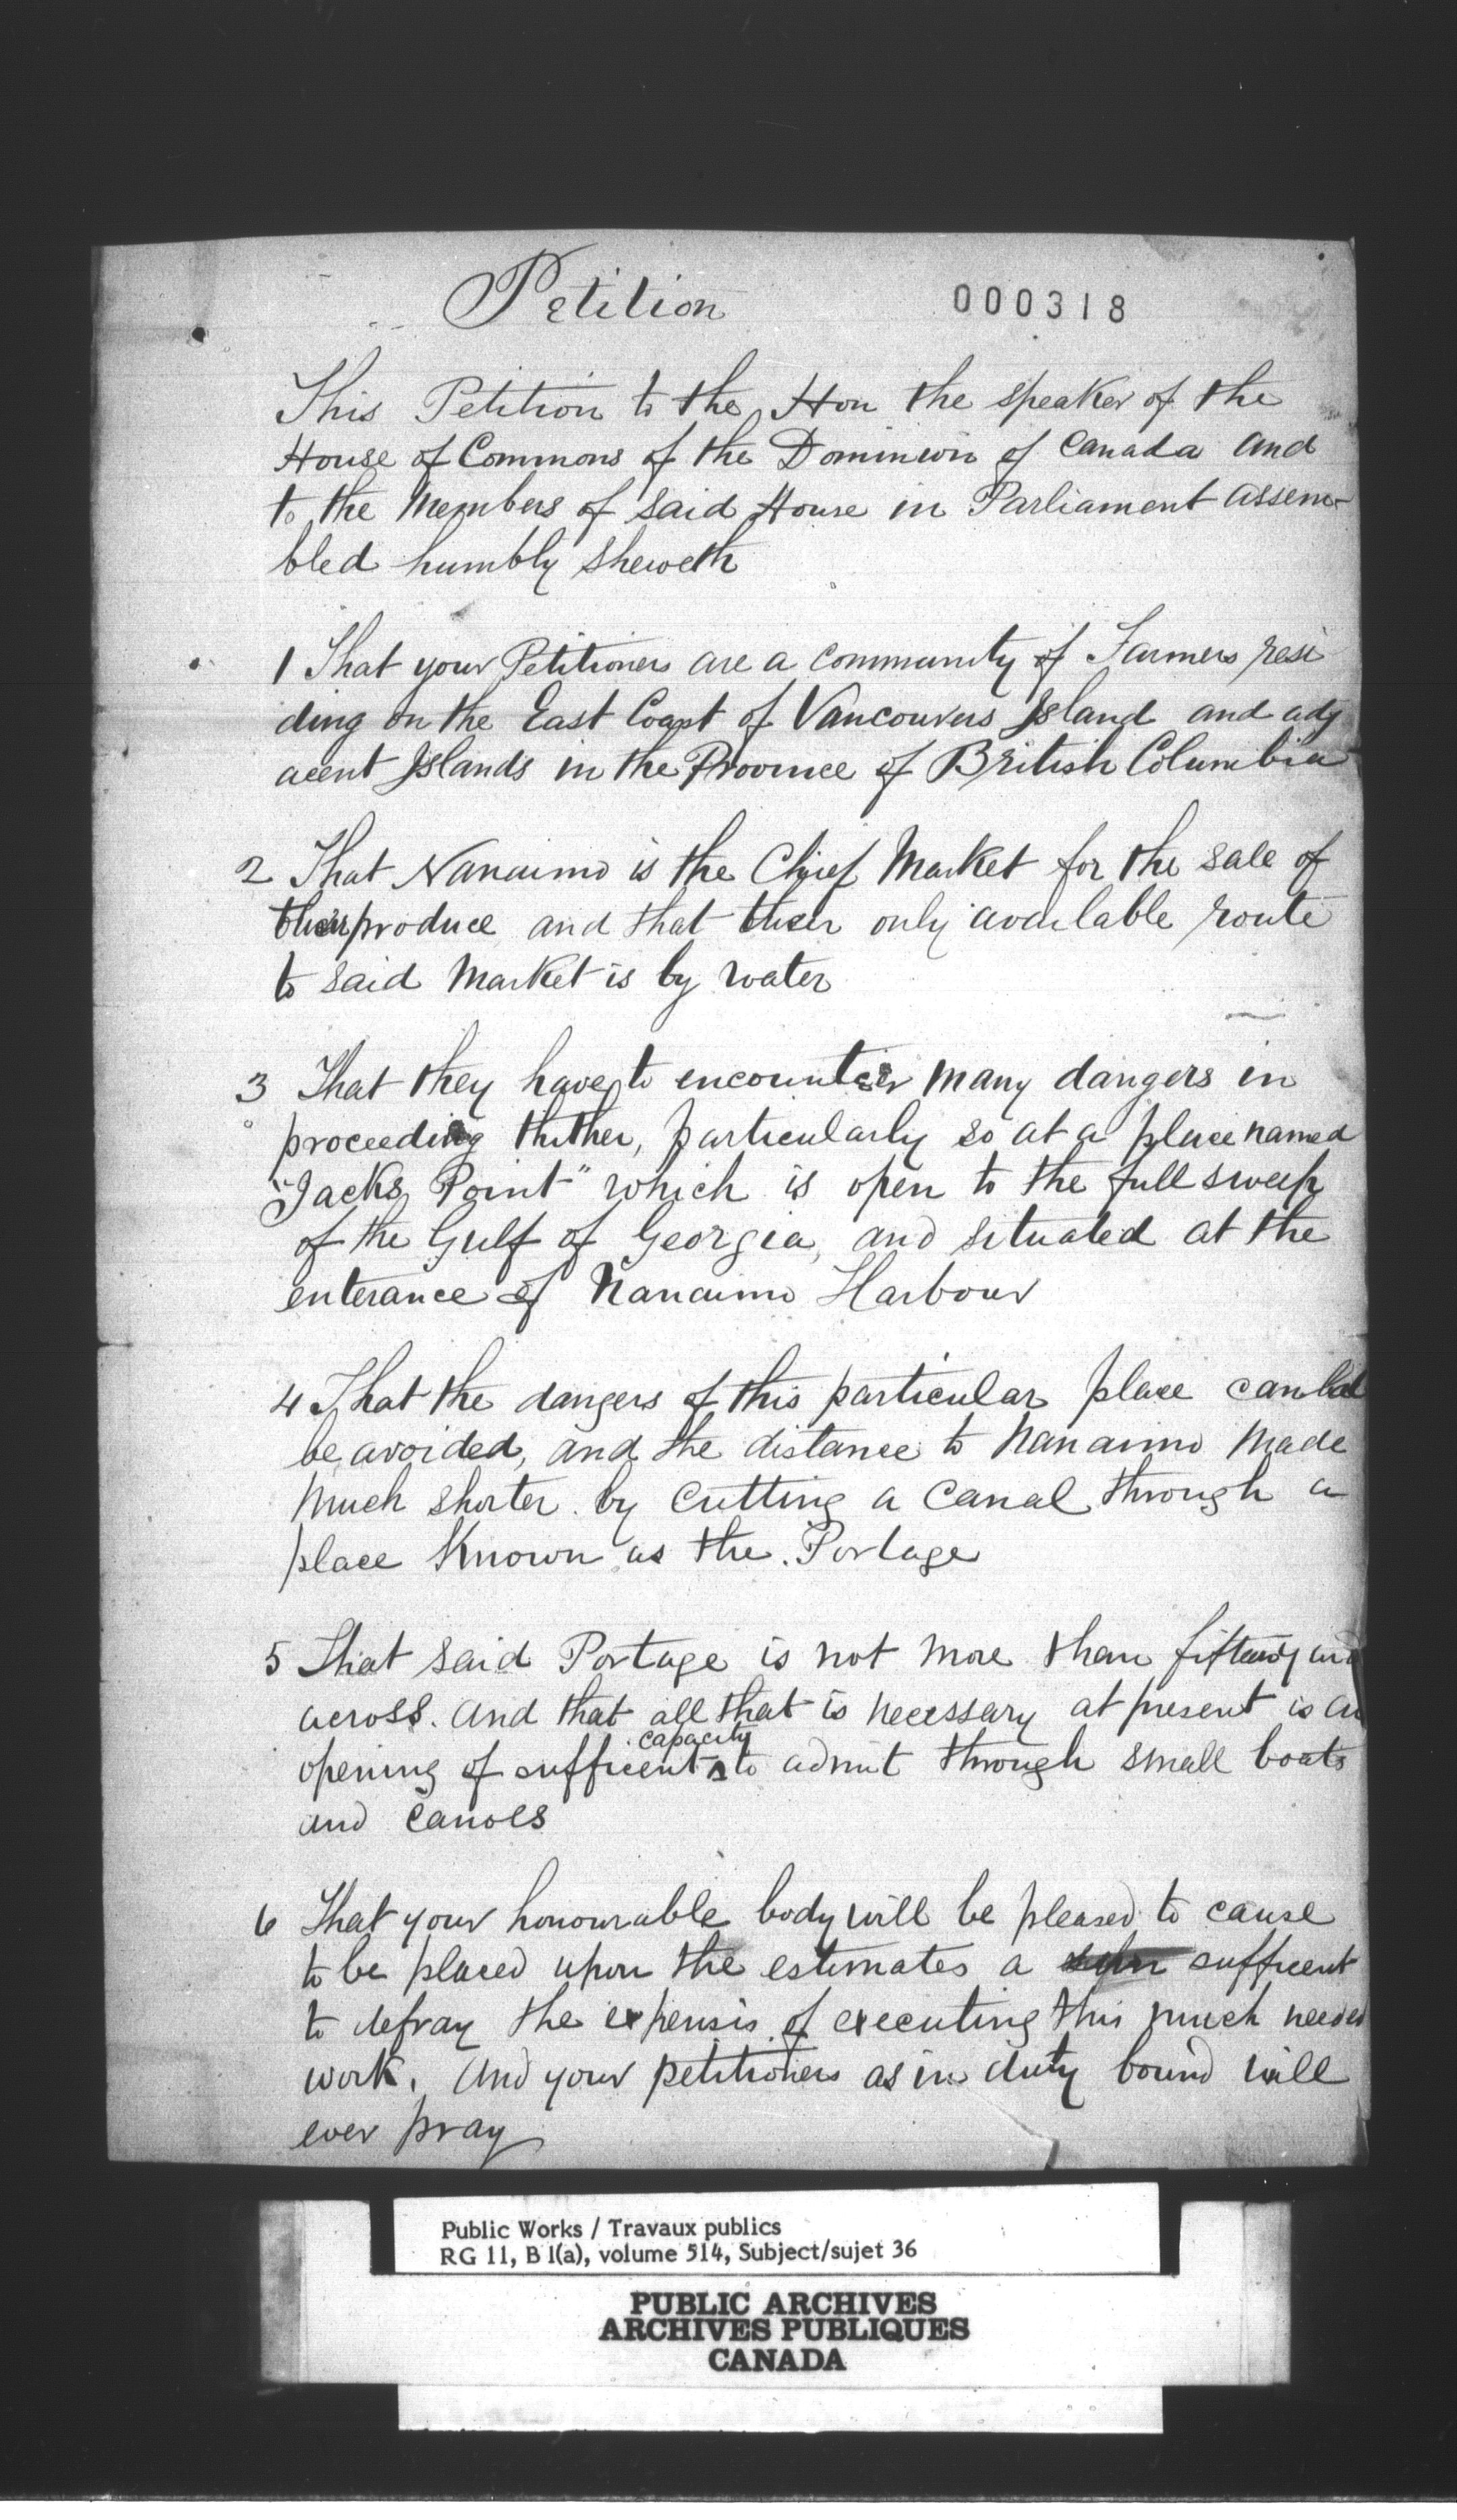 Petition
000318
This Petition to the Hon the speaker of the
House of Commons of the Dominion of Canada and
to the Members of said House in Parliament assem-
bled humbly sheweth
1 That your Petitioners are a community of Farmers resi
ding on the East Coast of Vancouvers Island and adj
acent Islands in the Province of British Columbia
2 That Nanaimo is the Chief Market for the sale of
their produce and that their only available route
to said Market is by water
3 That they have to encounter many dangers in
proceeding thither, particularly so at a place named
"Jacks Point" which is open to the full sweep
of the Gulf of Georgia, and situated at the
enterance of Nanaimo Harbour
4 That the dangers of this particular place can
be avoided, and the distance to Nanaimo Made
much shorter by cutting a Canal through a
place Known as the Portage
5 That said Portage is not more than
across. And that all that is necessary at present is an
opening of sufficent capacity to admit through small boats
and Canoes
6 That your honourable body will be pleased to cause
to be placed upon the estimates a sum sufficent
to defray the expensis of executing this much needed
work. And your petitioners as in duty bound will
ever pray
Public Works / Travaux publics
RG 11, B 1(a), volume 514, Subject/sujet 36
PUBLIC ARCHIVES
ARCHIVES PUBLIQUES
CANADA